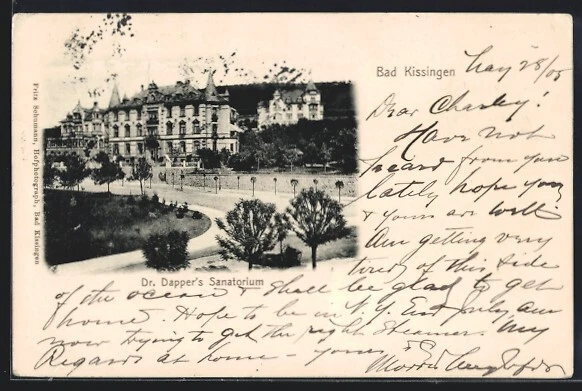 Bad Kissingen May 28/05
Dear Charley!
Have not
heard from you
lately hope you
& yours are well
Am getting very
tired of this side
of the ocean & shall be glad to get
home. Hope to be in N.Y. End July, am
now trying to get the right steamer. My
Regards at home – yours
Fritz Schumann, Hofphotograph, Bad Kissingen
Dr. Dapper's Sanatorium